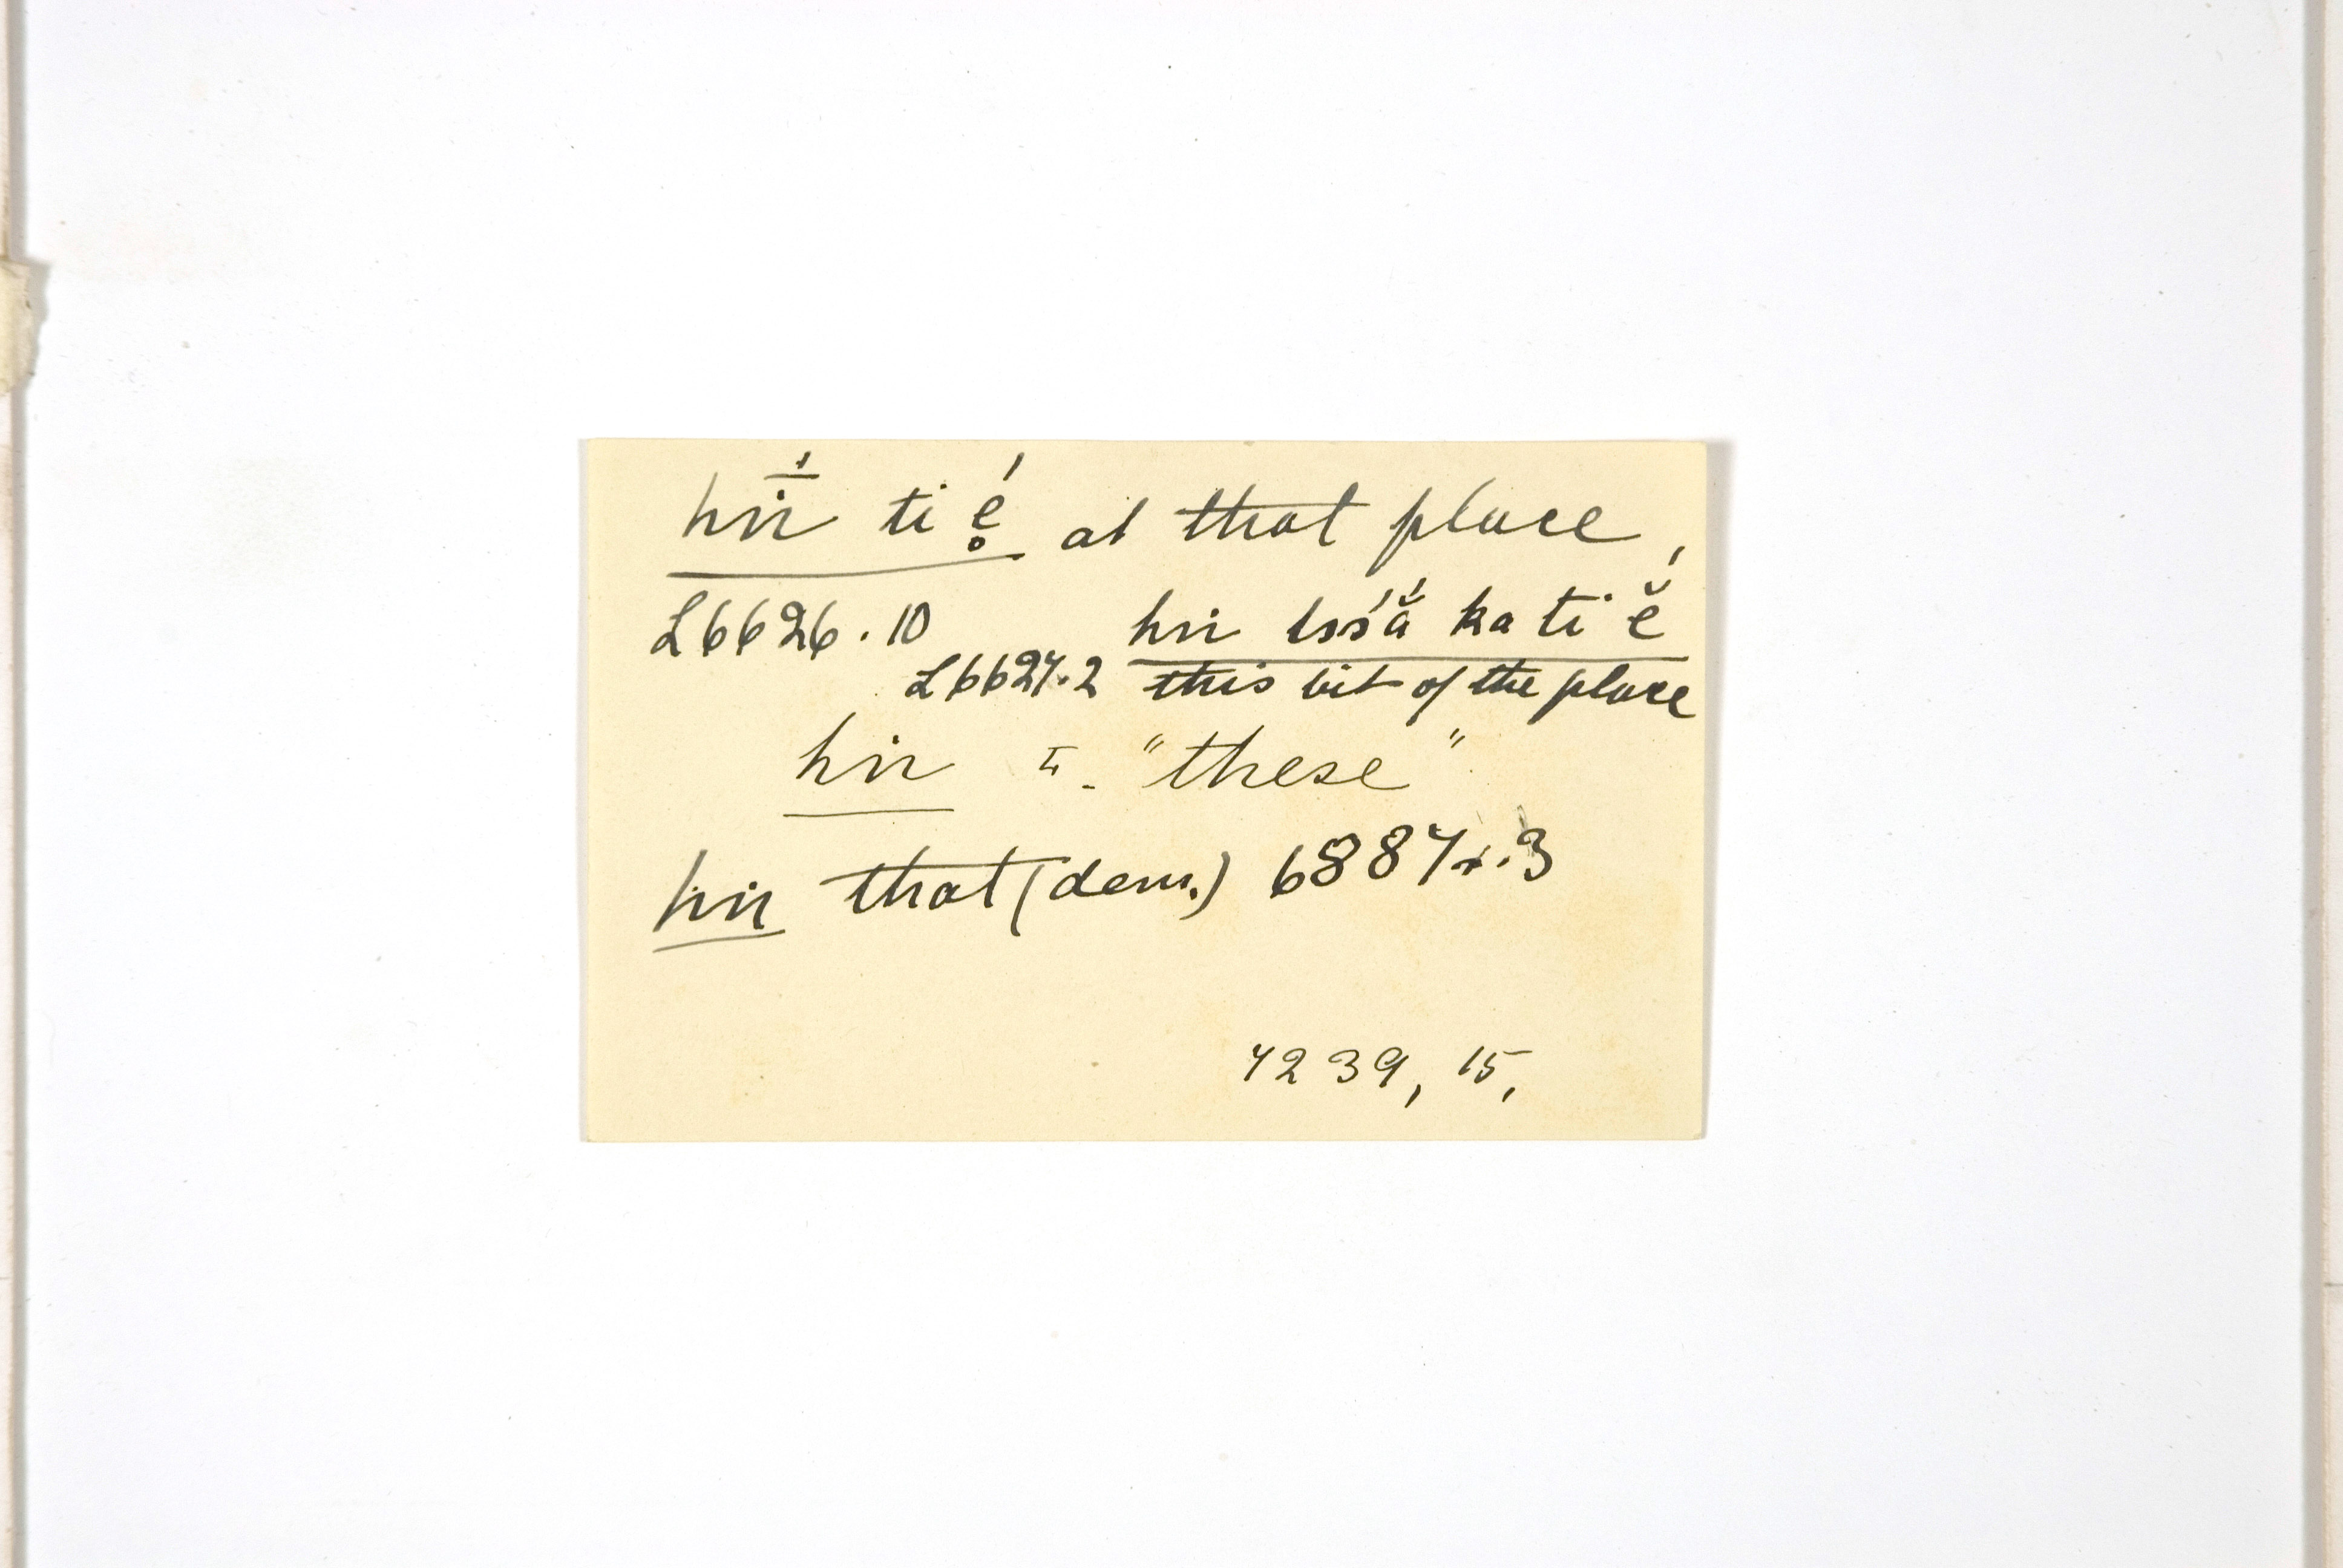 hiṅ̄́ ti é̥ at that place,
L6626.10 hiṅ tsś'ắ ka ti ĕ́
L6627.2 this bit of the place
hiṅ II. "these"
hiṅ that (dem.) 6887.3
7239, 15,